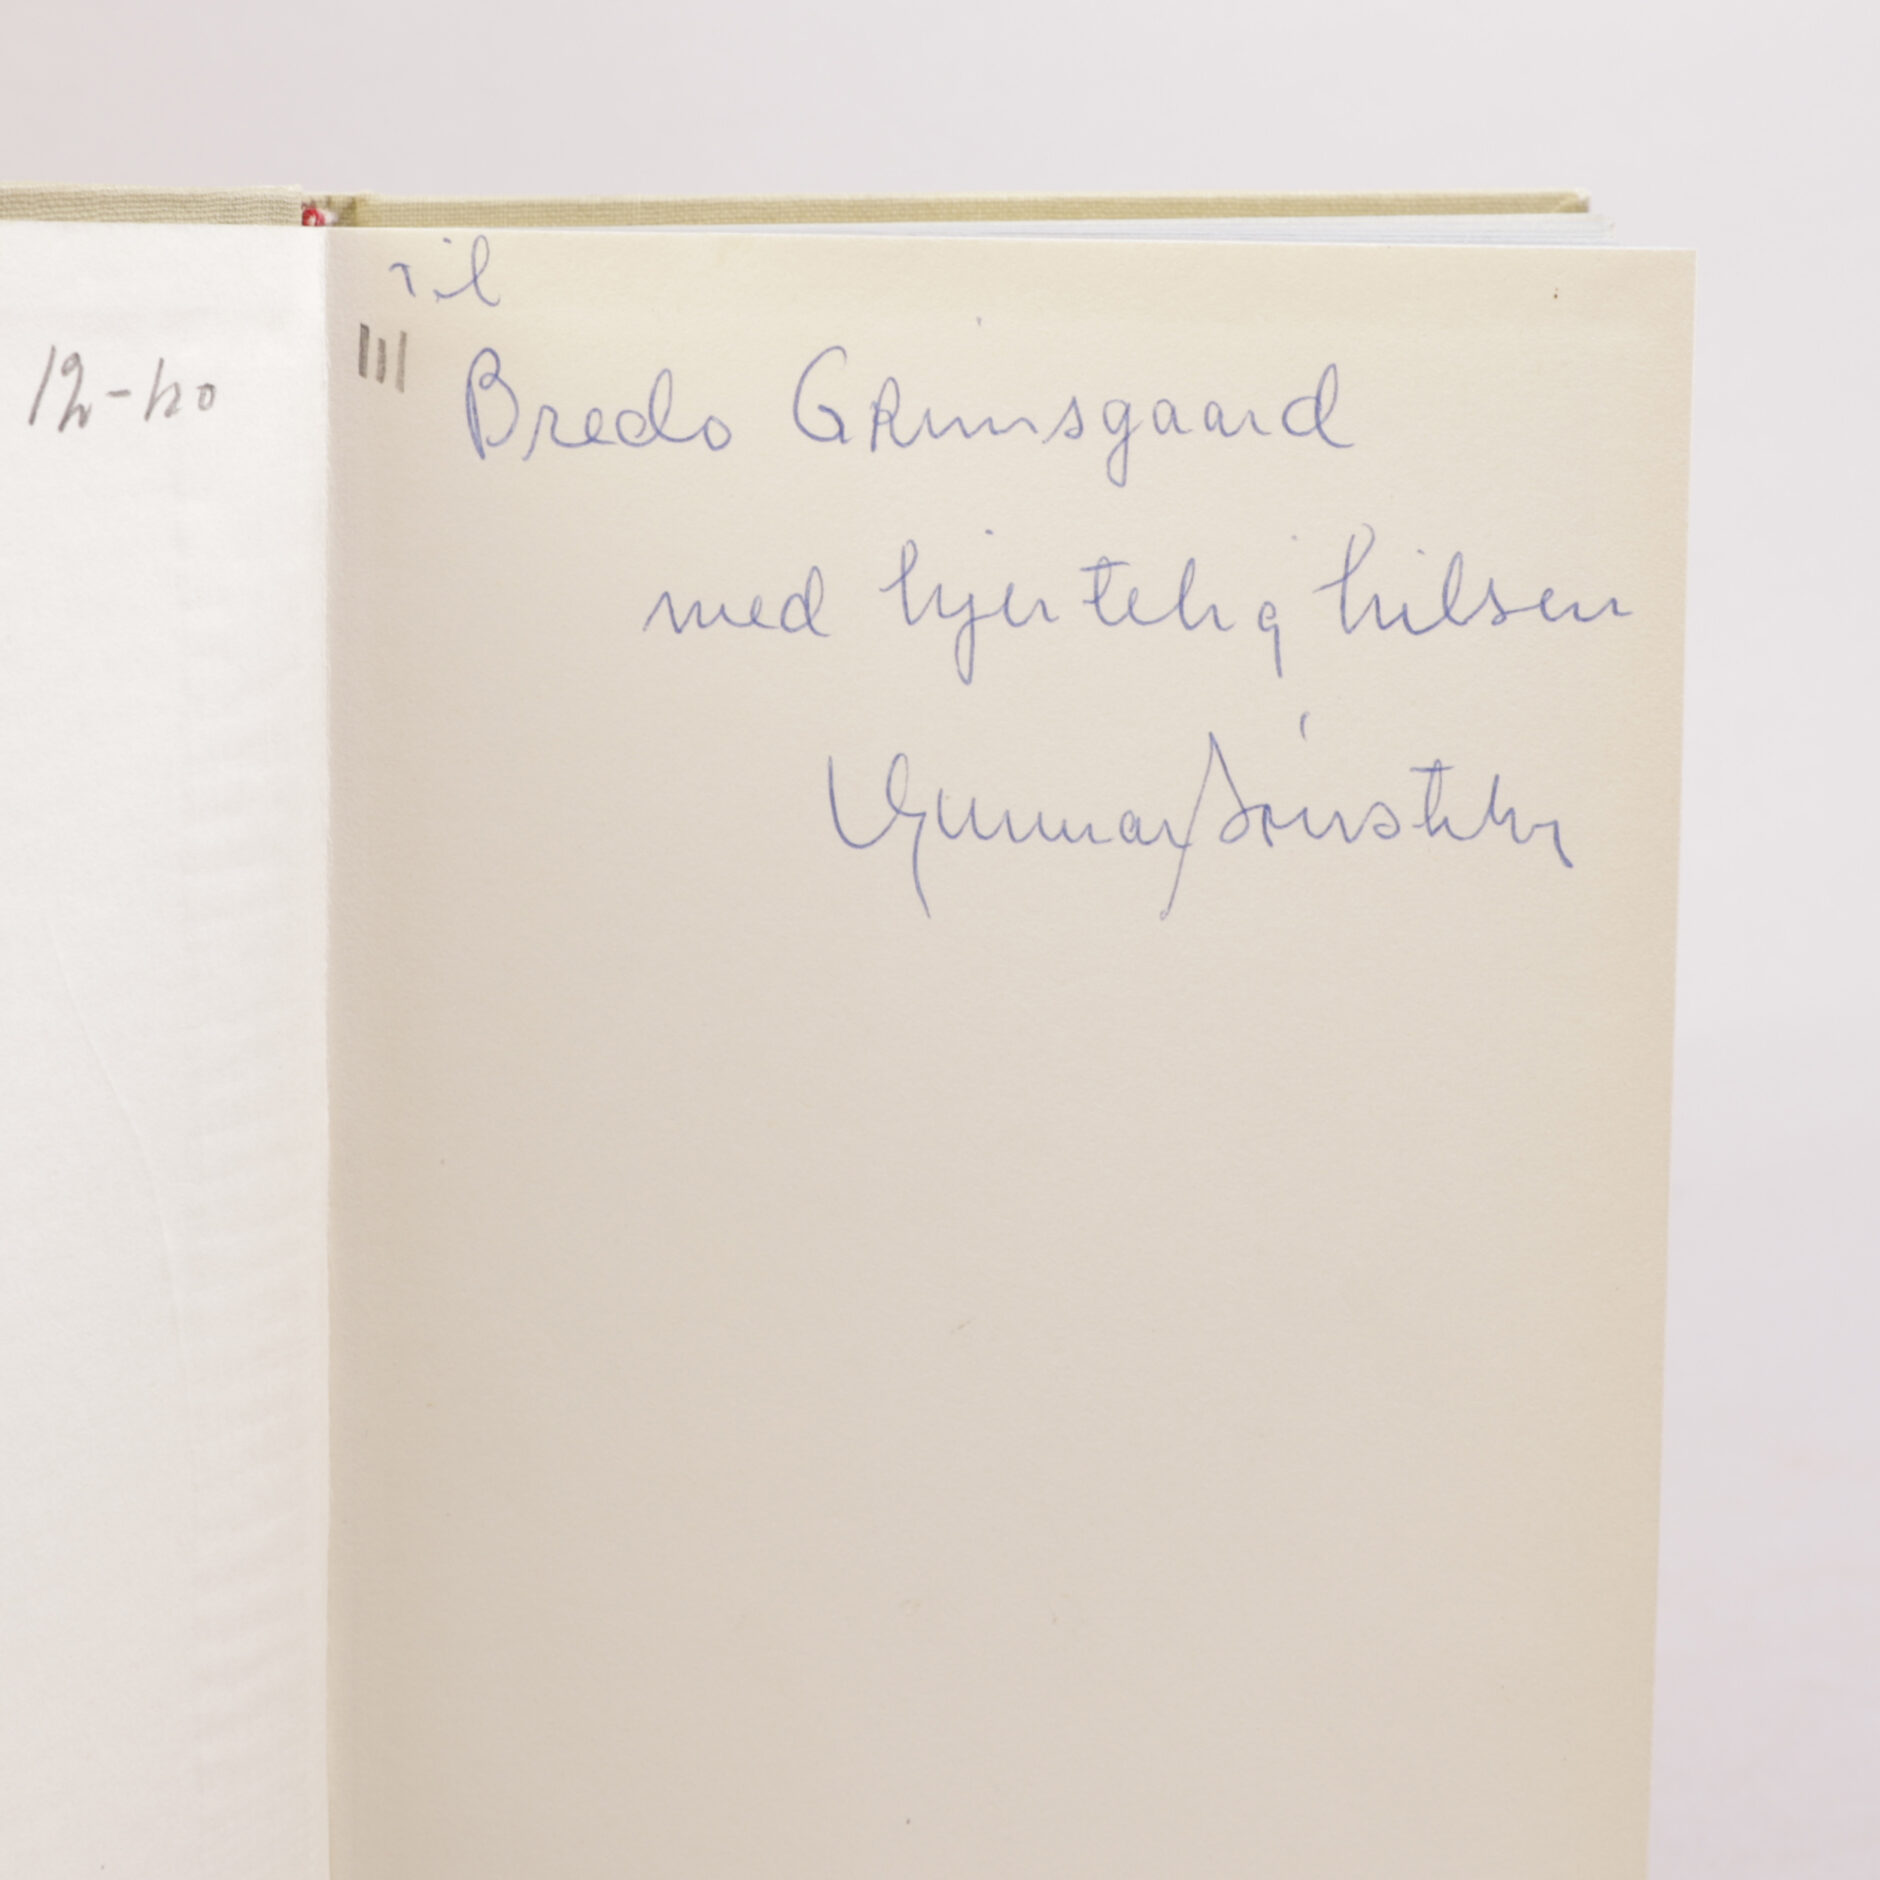 Til
III
Bredo Grimsgaard
med hjertelig hilsen
Gunnar Sønsteby